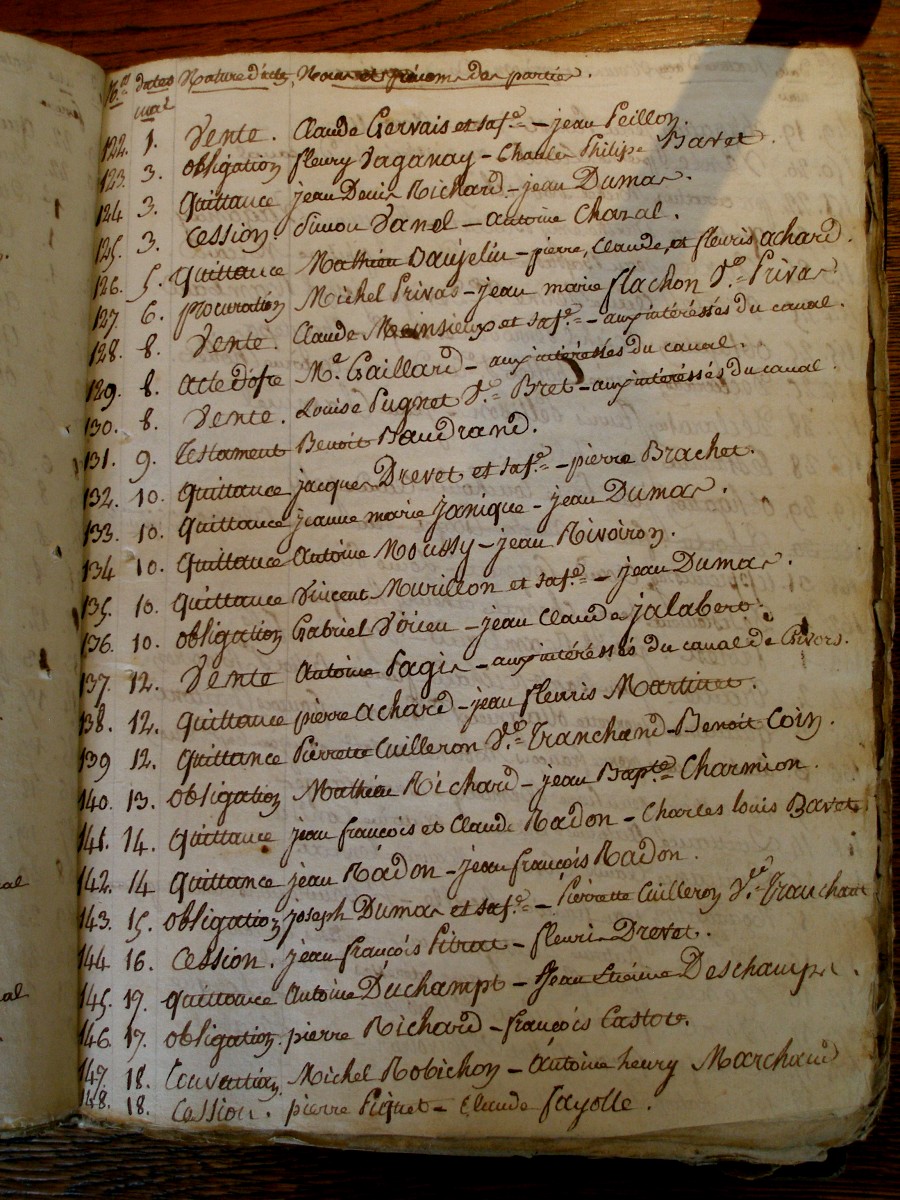 N.os dates Nature d'acte, Noms et prénoms des parties.
mai
122. 1. Vente. Claude Gervais et sa fe. – jean Peillon.
123. 3. obligation fleury Vaganay – Charles Philipe Bavet.
124 3. Quittance jean Denis Richard – jean Dumas.
125. 3. Cession. Simon Vanel – Antoine Chazal.
126. 5. Quittance Mathieu Daujelin – pierre, Claude, et fleuris achard.
127. 6. procuration Michel Privas – jean marie flachon Ve. Privas
128. 8. Vente. Claude Meinsieux et sa fe. – aux intéressés du canal.
129. 8. acte d'ofre Me. Gaillard – aux intéressés du canal.
130. 8. Vente. Louise Pugnet Ve. Bret – aux intéressés du canal.
131. 9. Testament Benoit Baudrand.
132. 10. Quittance jacques Drevet et sa fe. – pierre Brachet.
133. 10. Quittance jeanne marie Janique – jean Dumas.
134 10. Quittance Antoine Moussy – jean Rivoiron.
135. 10. Quittance Vincent Murillon et sa fe. – jean Dumas.
136. 10. obligation Gabriel Voüeu – jean Claude jalabert.
137. 12. Vente Antoine Pagis – aux intéressés du canal de Givors.
138. 12. Quittance pierre achard – jean fleuris Martinet.
139 12. Quittance Pierrette Cuilleron Ve. Tranchand – Benoit Coin.
140. 13. obligation Mathieu Richard – jean Bapte. Charmion.
141. 14. Quittance jean françois et Claude Radon – Charles louis Bavet
142. 14 Quittance jean Radon – jean françois Radon.
143. 15. obligation joseph Dumas et sa fe. – Pierrette Cuilleron Ve. Tranchant
144 16. Cession. jean françois Pitrat – fleuris Drevet.
145. 17. quittance Antoine Duchampt – Jean Etiénne Deschamps.
146. 17. obligation. pierre Richard – françois Castot.
147. 18. Convention Michel Robichon – Antoine henry Marchand
148. 18. Cession. pierre Piquet – Claude fayolle.